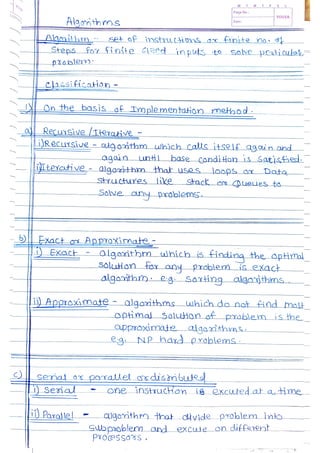 Algorithms
Algorithm - set of instructions or finite no. of
steps for finite inputs to solve particular
problem.
Classification -
1) On the basis of Implementation method.
a) Recursive / Iterative -
i) Recursive - algorithm which calls itself again and
again until base condition is satisfied.
ii) Iterative - algorithm that uses loops or Data
structures like stack or Queues to
solve any problems.
b) Exact or Approximate -
i) Exact - algorithm which is finding the optimal
solution for any problem is exact
algorithm. e.g. sorting algorithms.
ii) Approximate - algorithms which do not find most
optimal solution of problem is the
approximate algorithms.
e.g. NP hard problems.
c) serial or parallel or distributed
i) Serial - one instruction is excuted at a time
ii) Parallel - algorithm that divide problem into
subproblem and excute on different
processors.